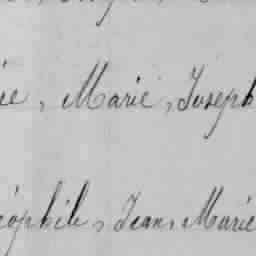 ie, Marie, Joseph
éophile, Jean, Marie